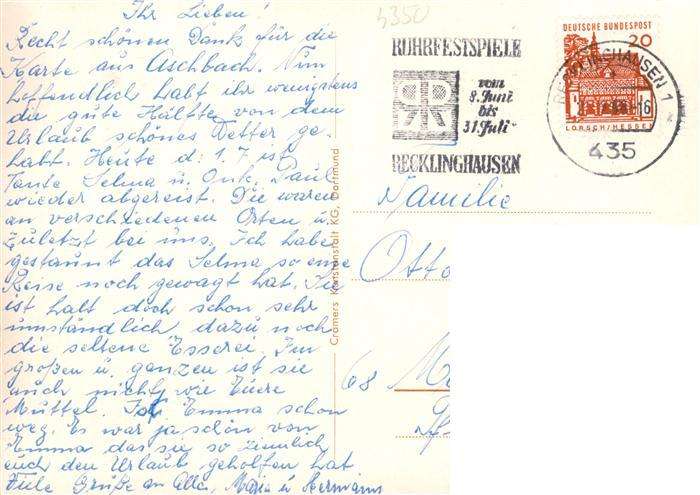 Ihr Lieben!
Recht schönen Dank für die
Karte aus Aschbach. Nun
hoffendlich habt ihr wenigstens
die gute Hälfte von dem
Urlaub schönes Wetter ge-
habt. Heute d. 1.7. ist
Tante Selma u. Onk. Paul
wieder abgereist. Die waren
an verschiedenen Orten u.
zuletzt bei uns. Ich habe
gestaunt das Selma so eine
Reise noch gewagt hat. Sie
ist halt doch schon sehr
umständlich dazu noch
die seltene Esserei. Im
großen u. ganzen ist sie
auch nicht wie Eure
Muttel. Ist Emma schon
weg. Es war ja schön von
Emma das sie so ziemlich
euch den Urlaub geholfen hat
Viele Grüße an Alle, Maria u Hermann
Cramers Kunstanstalt KG, Dortmund
4350
RUHRFESTSPIELE
vom
8. Juni
bis
31. Juli
RECKLINGHAUSEN
DEUTSCHE BUNDESPOST
20
LORSCH/HESSEN
RECKLINGHAUSEN 1
-16
435
Familie
Otto
68